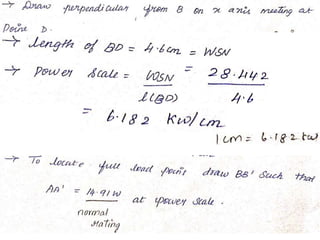 → Draw perpendicular from B on x axis meeting at
Point D.
→ length of BD = 4.6cm = WSN
→ Power Scale = WSN / l(BD) = 28.442 / 4.6
= 6.182 KW/cm
1cm = 6.182 kw
→ To locate full load point draw BB' Such that
AA' = 14.91W at power Scale.
normal
rating